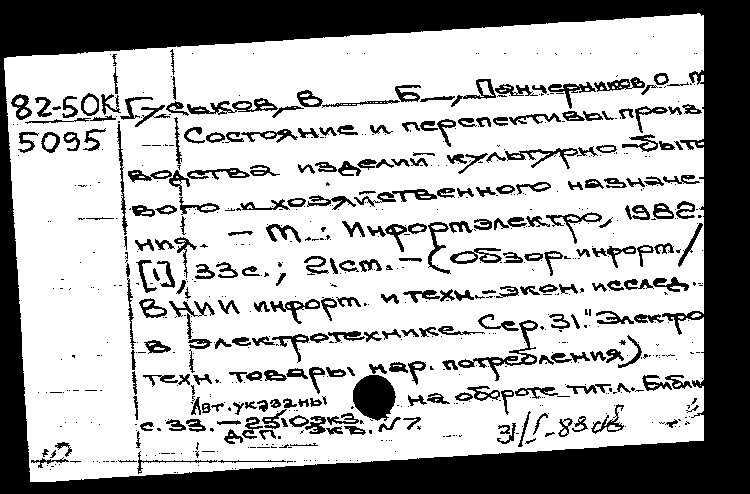 82-50К
5095
Гуськов, В Б, Панчерников, О
Состояние и перспективы произ-
водства изделий культурно-быто
вого и хозяйственного назначе-
ния. – М.: Информэлектро, 1982.
[1], 33с.; 21см. – (Обзор. информ. /
ВНИИ информ. и техн.-экон. исслед.
в электротехнике. Сер. 31. "Электро
техн. товары нар. потребления").
Авт. указаны на обороте тит.л. Библи
с. 33. – 2510экз.
ДСП. Экз. №7.
31/